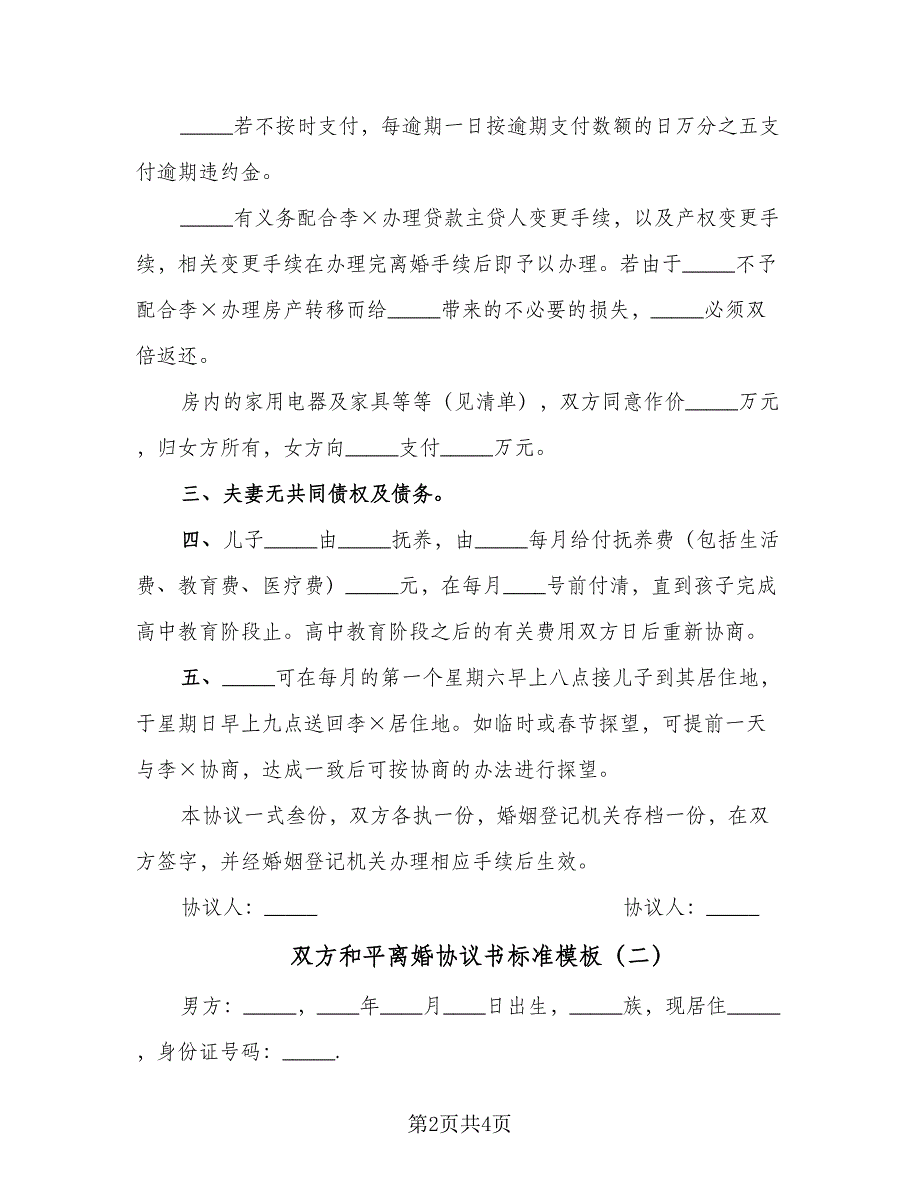 _____若不按时支付，每逾期一日按逾期支付数额的日万分之五支
付逾期违约金。
_____有义务配合李×办理贷款主贷人变更手续，以及产权变更手
续，相关变更手续在办理完离婚手续后即予以办理。若由于_____不予
配合李×办理房产转移而给_____带来的不必要的损失，_____必须双
倍返还。
房内的家用电器及家具等等（见清单），双方同意作价_____万元
，归女方所有，女方向_____支付_____万元。
三、夫妻无共同债权及债务。
四、儿子_____由_____抚养，由_____每月给付抚养费（包括生活
费、教育费、医疗费）_____元，在每月____号前付清，直到孩子完成
高中教育阶段止。高中教育阶段之后的有关费用双方日后重新协商。
五、_____可在每月的第一个星期六早上八点接儿子到其居住地，
于星期日早上九点送回李×居住地。如临时或春节探望，可提前一天
与李×协商，达成一致后可按协商的办法进行探望。
本协议一式叁份，双方各执一份，婚姻登记机关存档一份，在双
方签字，并经婚姻登记机关办理相应手续后生效。
协议人：_____ 协议人：_____
双方和平离婚协议书标准模板（二）
男方：_____，____年____月____日出生，_____族，现居住_____
，身份证号码：_____.
第2页共4页